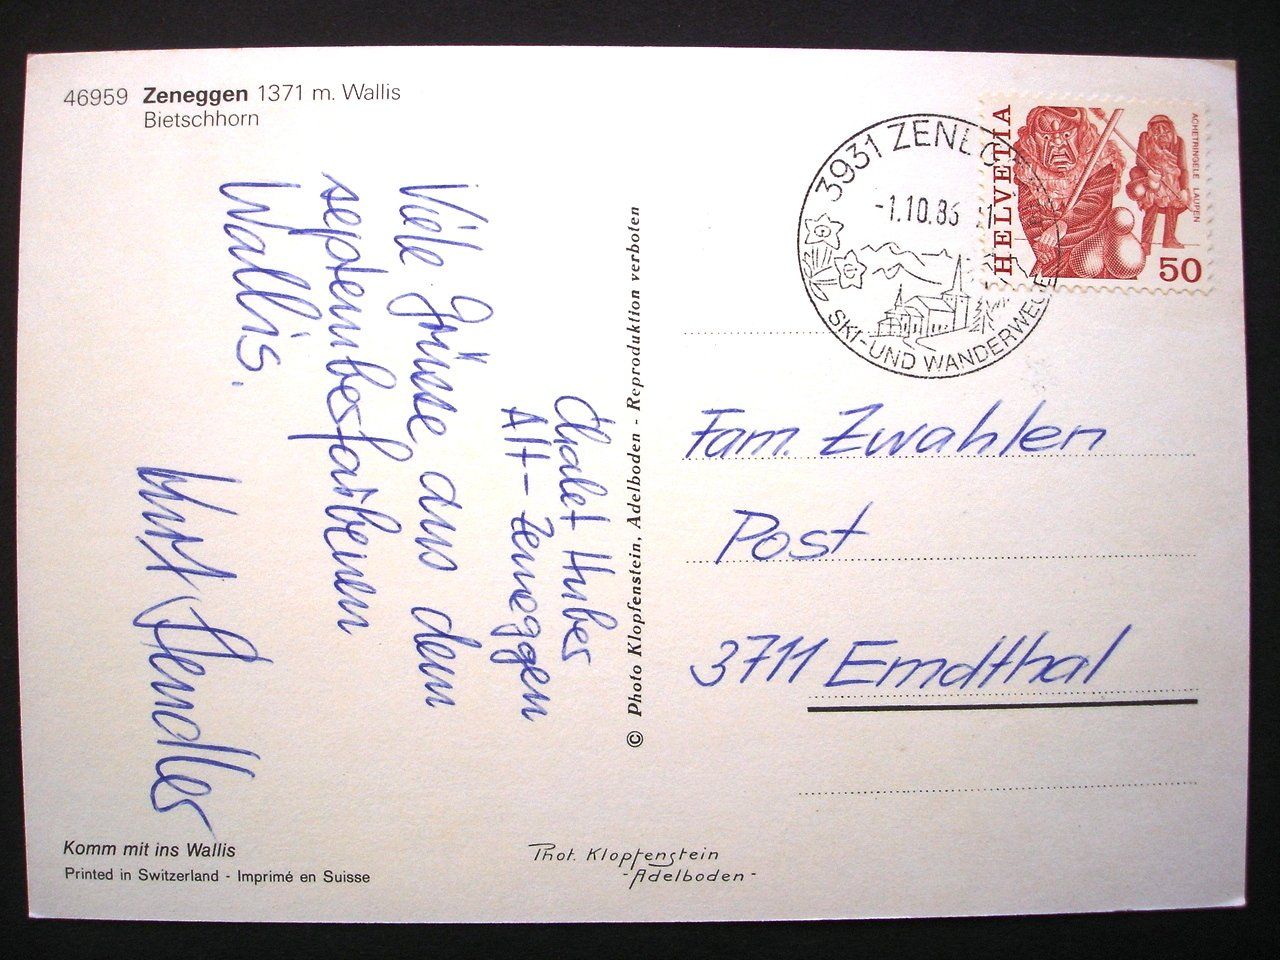 46959 Zeneggen 1371 m. Wallis
Bietschhorn
Chalet Huber
Alt-Zeneggen
Viele Grüsse aus dem
septemberfarbenen
Wallis.
Komm mit ins Wallis
Printed in Switzerland - Imprimé en Suisse
© Photo Klopfenstein, Adelboden - Reproduktion verboten
Phot. Klopfenstein
-Adelboden-
3931 ZENEG
-1.10.86
SKI-UND WANDERWEGE
HELVETIA
ACHETRINGELE LAUPEN
50
Fam. Zwahlen
Post
3711 Emdthal